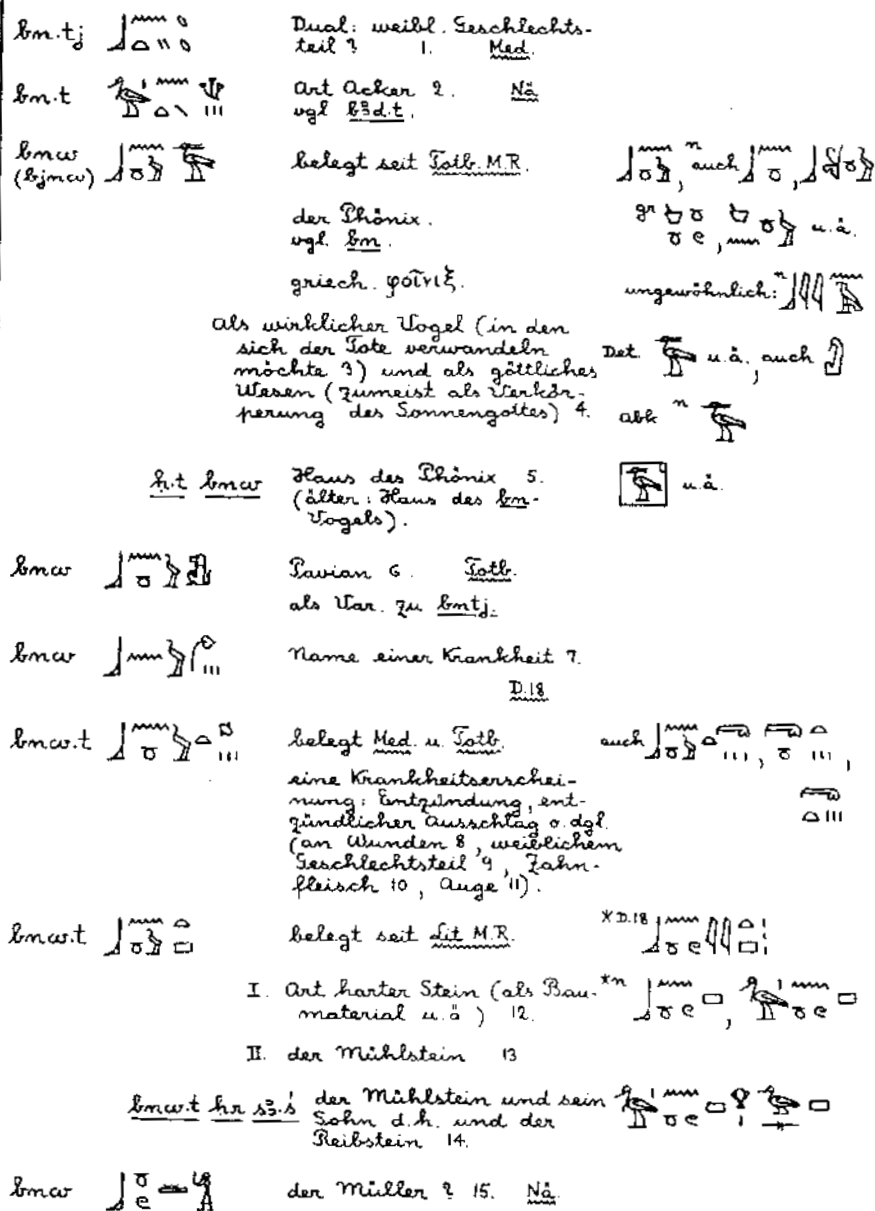 bn.tj Dual: weibl. Geschlechts-
teil? 1. Med.
bn.t Art Acker 2. Nä
vgl bꜣd.t.
bnw
(bjnw) belegt seit Totb. M.R. n auch
der Phönix. gr u.ä.
vgl. bn.
griech. φοῖνιξ. ungewöhnlich: n
Als wirklicher Vogel (in den
sich der Tote verwandeln Det. u.ä., auch
möchte 3) und als göttliches
Wesen (zumeist als Verkör-
perung des Sonnengottes) 4. Abk n
ḥ.t bnw Haus des Phönix 5. u.ä.
(älter: Haus des bn-
Vogels).
bnw Pavian 6. Totb.
als Var. zu bntj.
bnw Name einer Krankheit 7.
D.18
bnw.t belegt Med. u. Totb. auch
eine Krankheitserschei-
nung: Entzündung, ent-
zündlicher Ausschlag o. dgl.
(an Wunden 8, weiblichem
Geschlechtsteil 9, Zahn-
fleisch 10, Auge 11).
bnw.t belegt seit Lit M.R. *D.18
I. Art harter Stein (als Bau- *n
material u.ä) 12.
II. der Mühlstein 13
bnw.t ḥr sꜣ.ś der Mühlstein und sein
Sohn d.h. und der
Reibstein 14.
bnw der Müller? 15. Nä.